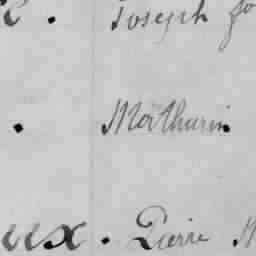 Joseph
Mathurin.
ux. Pierre